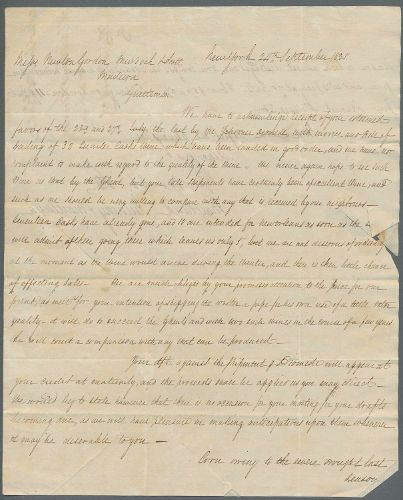 New York 24th September 1821
Messrs Newton Gordon Murdoch &
Madeira
Gentlemen
We have to acknowledge receipt of your esteemed
favors of the 23d and 27th July, the last by the with invoice and bill of
lading of 33 Quarter Casks wine, which have been landed in good order, and we have no
complaint to make with regard to the quality of the wine. We never again hope to see such
wine as that by the but your late shipments have certainly been excellent wine, and
such as we should be very willing to compare with any that is received by our neighbours
Seventeen Casks have already gone, and 10 are intended for New Orleans as soon as the
will admit of their going there which leaves us only but we are not desirous of ordering
at the moment as the wine would arrive during the winter, and there is then less chance
of effecting sales. We are much obliged by your promised attention to the pipe for our
friend, as well for your intention of shipping the a pipe for his own use of a little
quality it will do to succeed the and with two such wines in the course of a few years
he will court a comparison with any that can be produced.
Your dft against the shipment Diomede will appear at
your credit at maturity, and the proceeds shall be applied as you may direct
We would beg to state however that there is no occasion for your waiting for your drafts
becoming due, as we will have pleasure in making anticipations upon them whenever
it may be desirable to you
Corn owing to the severe drought last
season